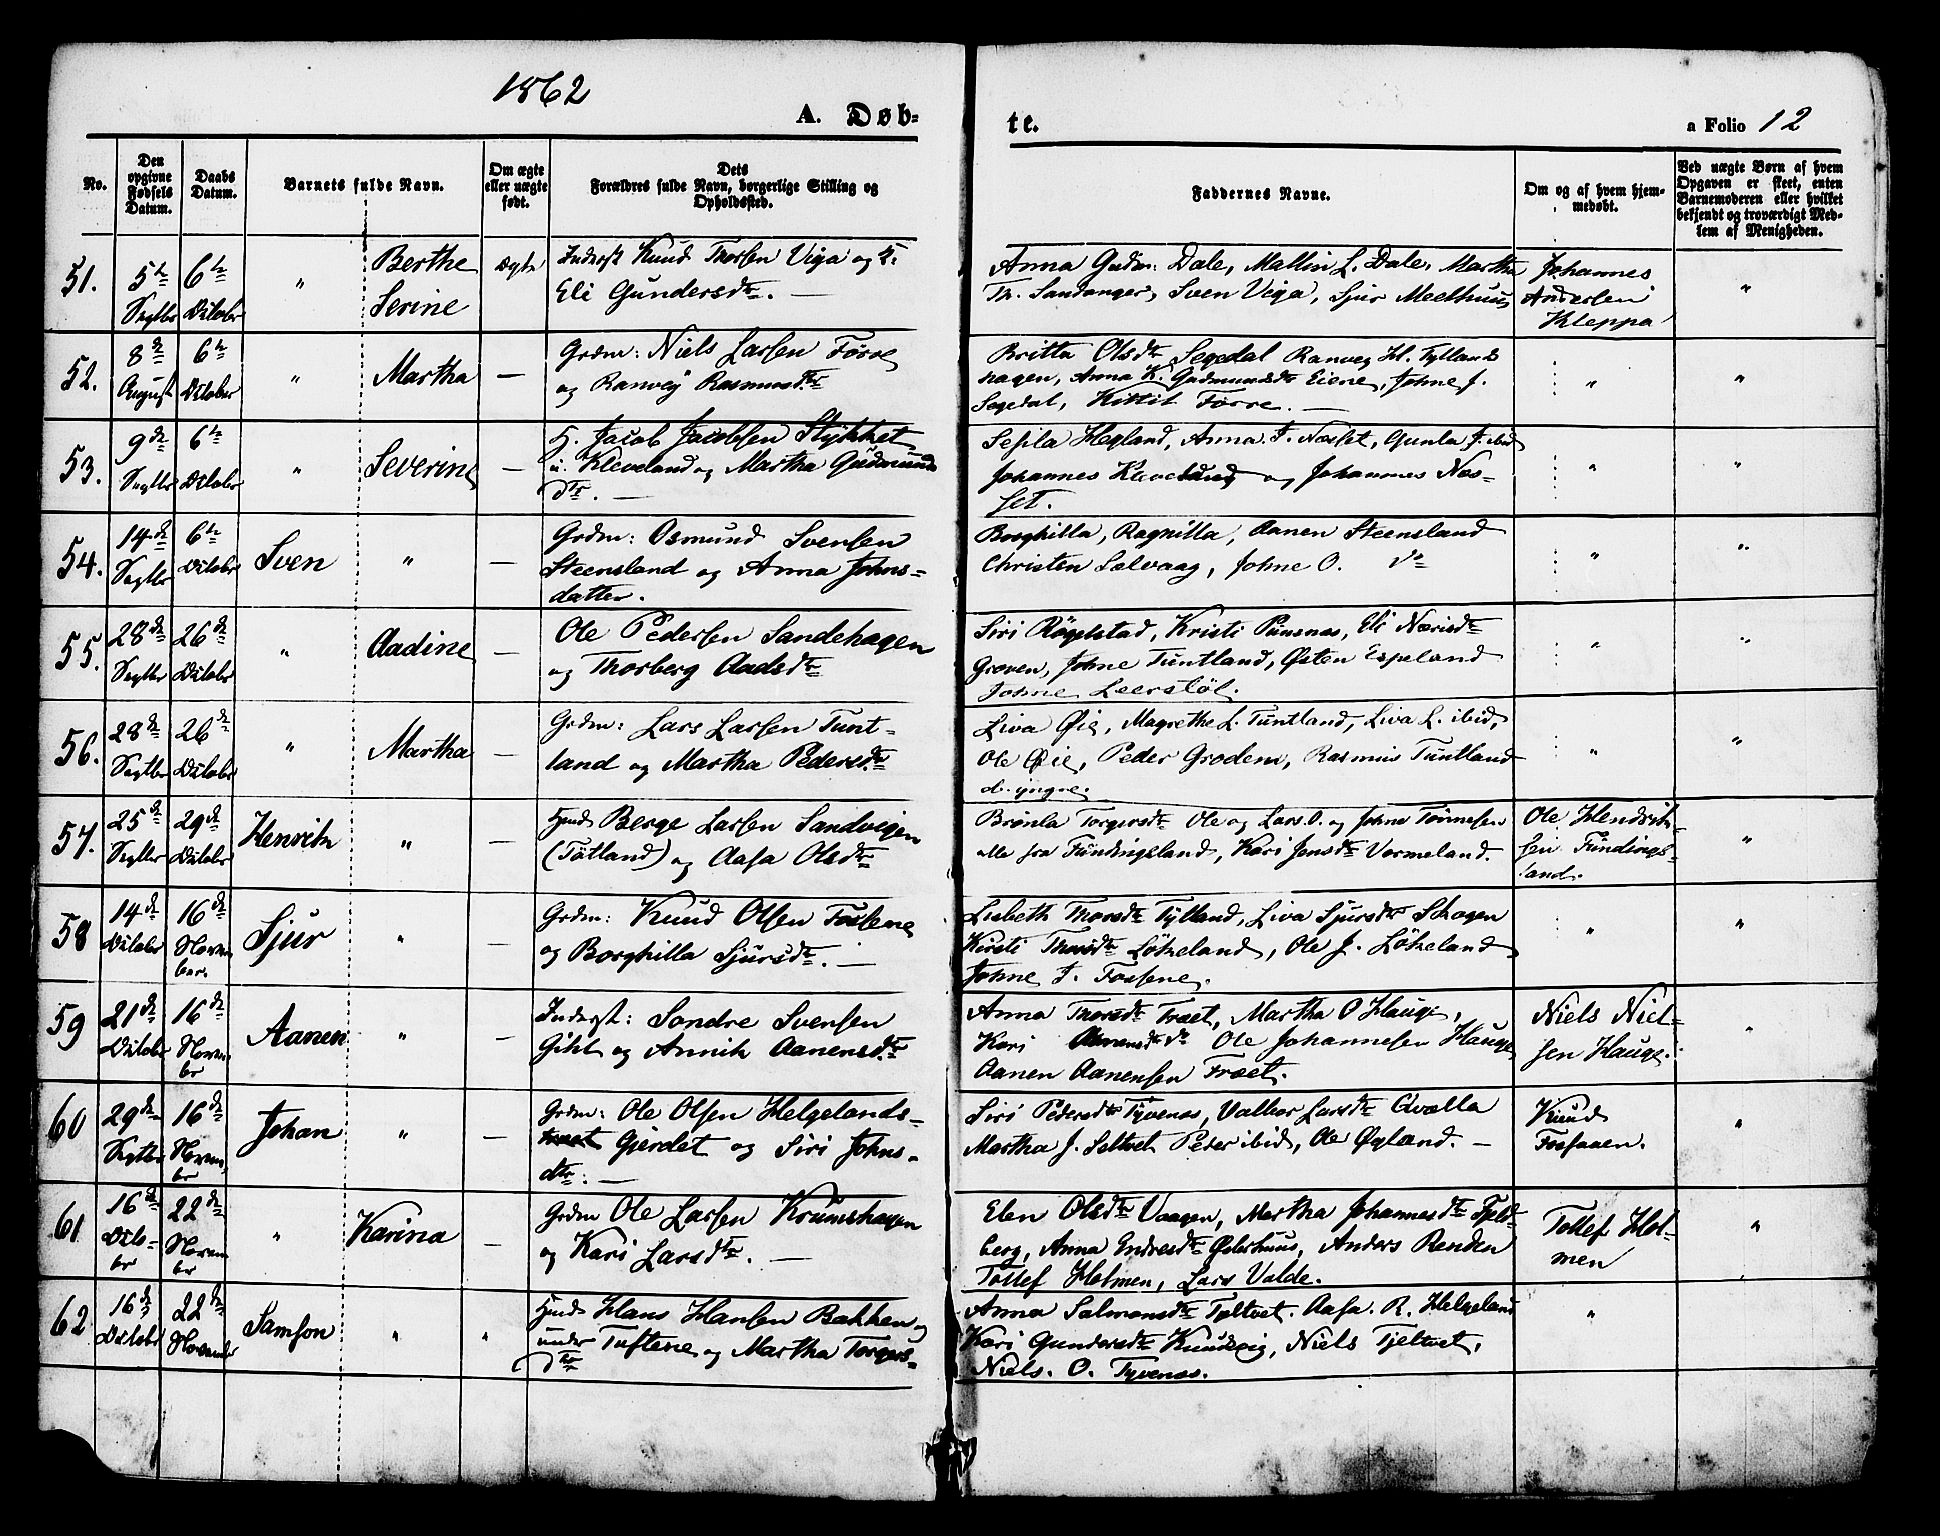 1862
A. Døb-
te.
a Folio 12
No.
Den opgivne Fødsels Datum.
Daabs Datum.
Barnets fulde Navn.
Om ægte eller uægte født.
Dets Forældres fulde Navn, borgerlige Stilling og Opholdssted.
Faddernes Navne.
Om og af hvem hjemmedøbt.
Ved uægte Børn af hvem Opgaven er skeet, enten Barnemoderen eller hvilket bekjendt og troværdigt Medlem af Menigheden.
51. 5te Septbr 6te Octobr " Berthe Serine Ægte
Inderst Knud Thorsen Viga og K.
Eli Gundersdtr. —
Anna Gudm: Dale, Mallin L. Dale, Martha
Th. Sandanger, Sven Viga, Sjur Meelhuus
Johannes
Andersen
Kleppa
"
52. 8de August 6te Octobr " Martha —
Grdm: Niels Larsen Førre
og Ranvej Rasmusdtr
Britta Olsdtr Segedal Ranveg Hl. Tytland
hagen, Anna K. Gudmundsdtr Eiene, Johne J.
Segedal, Kittil Førre. —
" "
53. 9de Septbr 6te Octobr " Severine —
H. Jacob Jacobsen Stykket
u. Kleveland og Martha Gudmunds
dtr. —
Sesila Hegland, Anna J. Næsset, Gunla J. ibid
Johannes Kleveland og Johannes Næs-
set.
" "
54. 14de Septbr 6te Octobr Sven " —
Grdm: Osmund Svensen
Steensland og Anna Johns-
datter.
Borghilla, Ragnilla, Aanen Steensland
Christen Sælvaag, Johne O. do
" "
55. 28de Septbr 26de Octobr " Aadine —
Ole Pedersen Sandehagen
og Thorberg Aadsdtr
Siri Røgelstad, Kristi Punsnæs, Eli Nærisdtr
Groven, Johne Tuntland, Østen Espeland
Johne Leerstøl.
" "
56. 28de Septbr 26de Octobr " Martha —
Grdm: Lars Larsen Tunt-
land og Martha Pedersdtr
Liva Øie, Magrethe L. Tuntland, Liva L. ibid,
Ole Øie, Peder Grodem, Rasmus Tuntland
d. yngre.
" "
57. 25de Septbr 29de Octobr Henrik " —
Hmd Berge Larsen Sandvigen
(Tøtland) og Aasa Olsdtr
Brønla Torgersdtr Ole og Lars O. og Johne Tønnesen
alle fra Fundingsland, Kari Jonsdtr Vormeland.
Ole Hendrik-
sen Fundings-
land.
"
58 14de Octobr 16de Novem ber. Sjur " —
Grdm: Knud Olsen Fossene
og Borghilla Sjursdtr. —
Lisbeth Thorsdtr Tytland, Liva Sjursdtr Skogen
Kirsti Thorsdtr Løkeland, Ole J. Løkeland
Johne J. Fossene.
" "
59 21de Octobr 16de Novem br Aanen " —
Inderst: Sondre Svensen
Gihl og Annik Aanensdtr
Anna Thorsdtr Træet, Martha O Hauge,
Kari Aanensdtr do Ole Johannesen Hauge
Aanen Aanensen Træet.
Niels Niel-
sen Hauge.
"
60 29de Septbr 16de Novem br Johan " —
Grdm: Ole Olsen Helgelands-
træet Gjerdet og Siri Johns-
dtr: —
Siri Pedersdtr Tyvenæs, Valbor Larsdtr Qvælla
Martha J. Seltvet Peder ibid, Ole Øgland. —
Knud
Fossaaen.
"
61 16de Octo-br 22de Novem br " Karina —
Grdm Ole Larsen Krumshagen
og Kari Larsdtr. —
Elen Olsdtr Vaagen, Martha Johannesdtr Fjeld-
berg, Anna Endresdtr Østerhuus, Anders Renden
Tollef Holmen, Lars Valde.
Tollef Hol-
men
"
62 16de Octobr 22de Novembr Samson " "
Hmd: Hans Hansen Bakken og
under Tuftene og Martha Torgers-
dtr
Anna Salmonsdtr Tjeltvet. Aasa. R. Helgeland
Kari Gundersdtr Knudsvig, Niels Tjeltvet,
Niels. O. Tyvenæs.
"